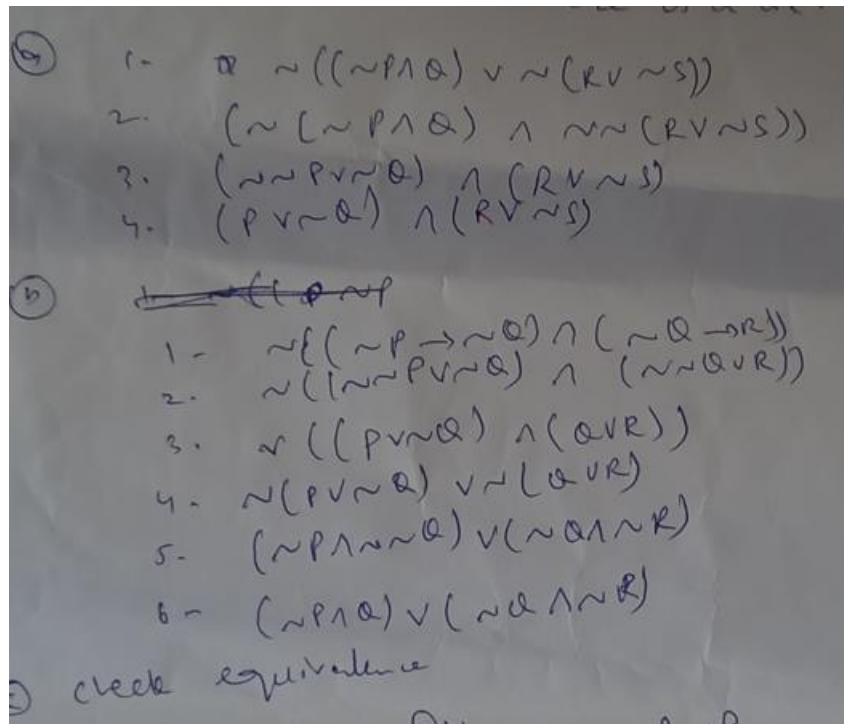 (a) 1- ~((~P∧Q) ∨ ~(R∨ ~S))
2. (~(~P∧Q) ∧ ~~(R∨~S))
3. (~~P∨~Q) ∧ (R∨~S)
4. (P∨~Q) ∧(R∨~S)
(b)
1- ~((~P→~Q)∧(~Q→R))
2. ~((~~P∨~Q) ∧ (~~Q∨R))
3. ~((P∨~Q) ∧(Q∨R))
4- ~(P∨~Q) ∨~(Q∨R)
5- (~P∧~~Q)∨(~Q∧~R)
6- (~P∧Q)∨(~Q∧~R)
check equivalence